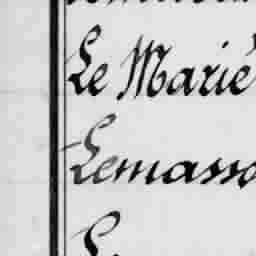 Le Marié
Lemasso